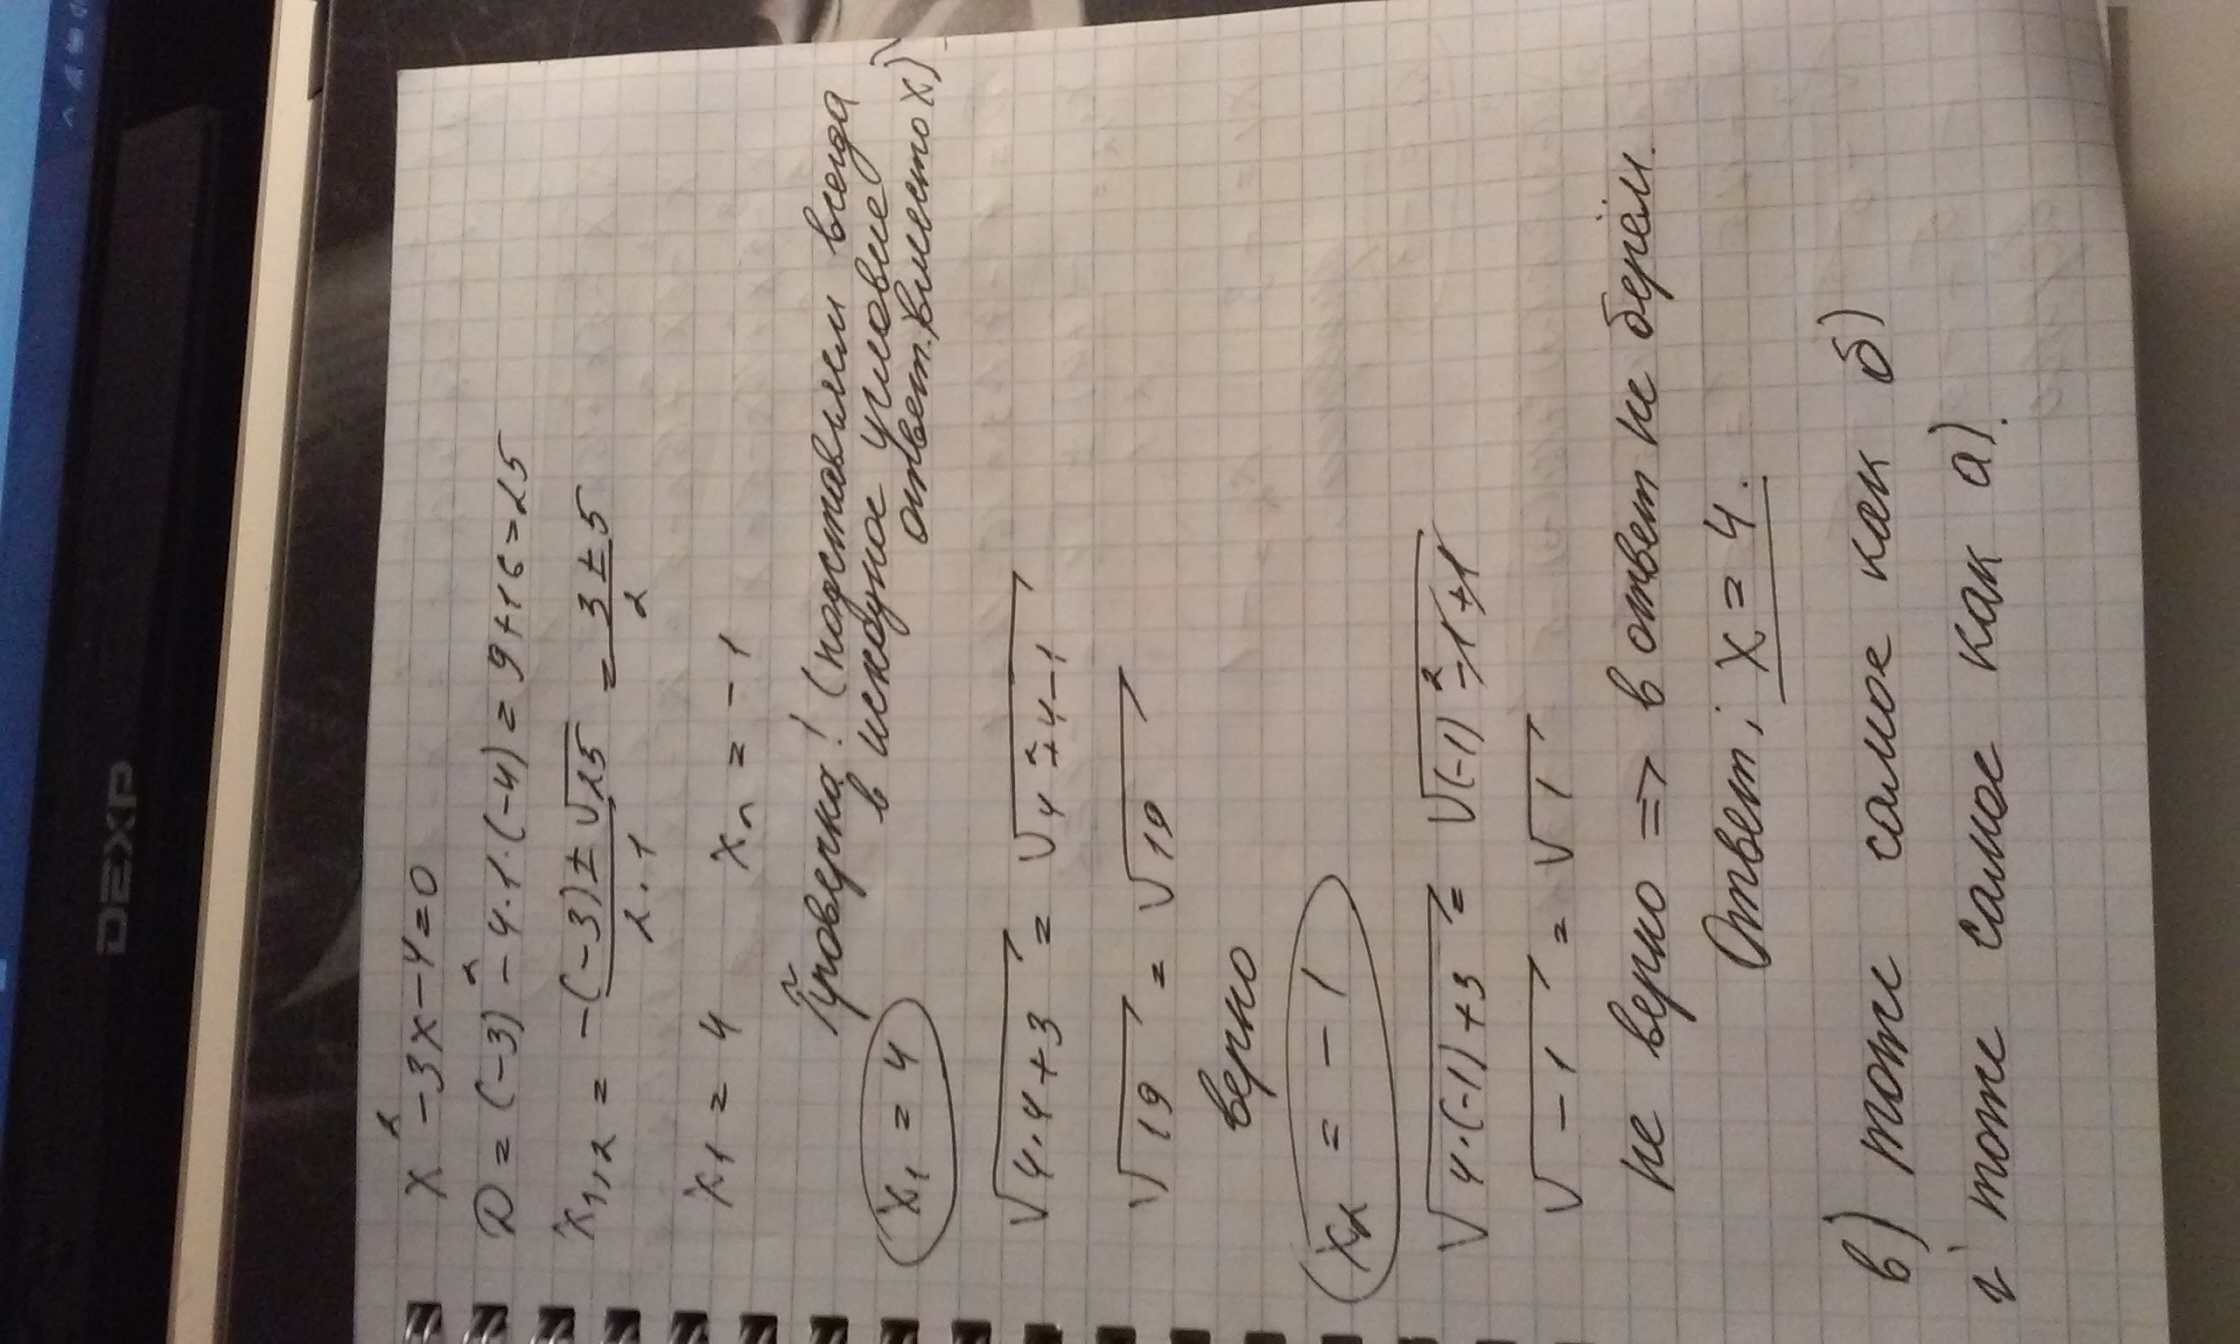 DEXP
x² - 3x - 4 = 0
D = (-3)² - 4·1·(-4) = 9 + 16 = 25
x₁,₂ = (-(-3) ± √25) / (2·1) = (3 ± 5) / 2
x₁ = 4 x₂ = -1
Проверка! (подставляем всегда
в исходное условие
ответ. вместо x)
x₁ = 4
√(4·4+3) = √(4²+4-1)
√19 = √19
верно
x₂ = -1
√(4·(-1)+3) = √((-1)²-1+1)
√-1 = √1
не верно => в ответ не берём.
Ответ: x = 4.
в) тоже самое как б)
г) тоже самое как а).